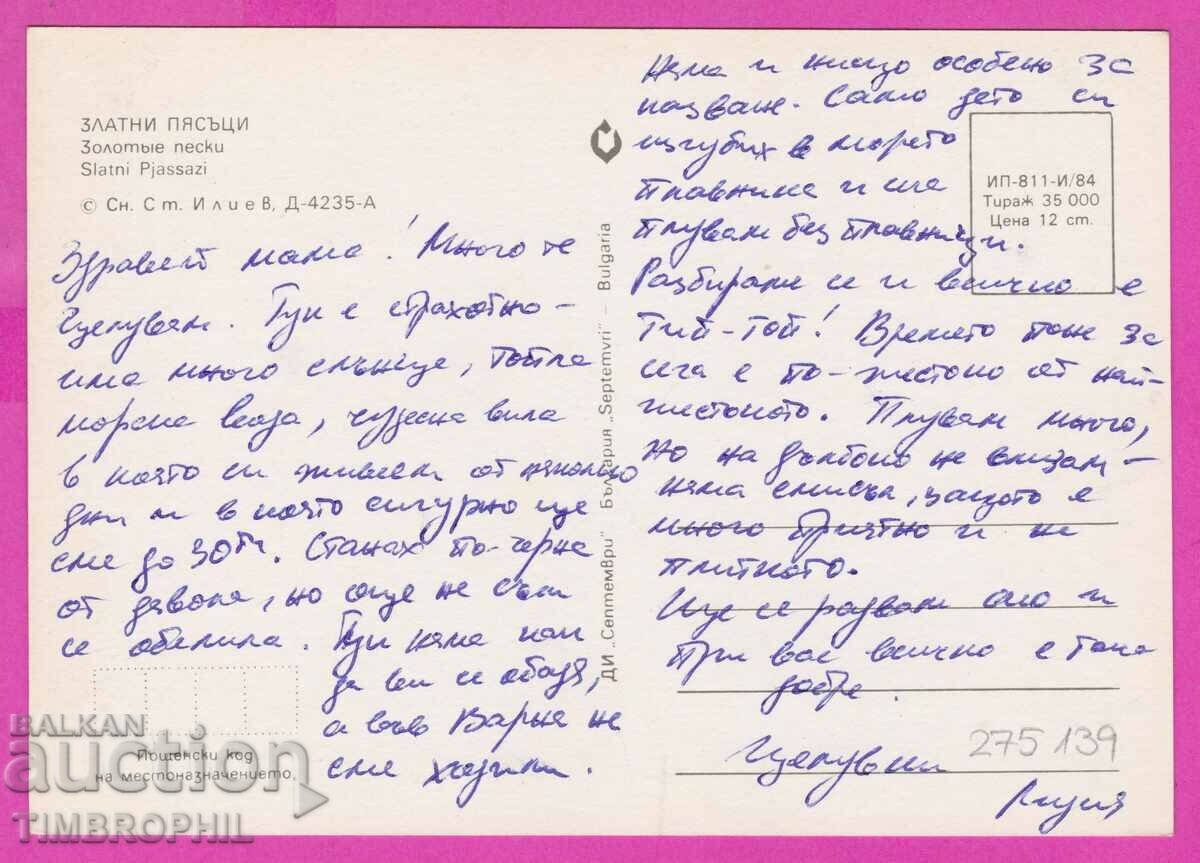 ЗЛАТНИ ПЯСЪЦИ
Золотые пески
Slatni Pjassazi
© Сн. Ст. Илиев, Д-4235-А
Здравей мамо! Много те
целувам. Тук е страхотно –
има много слънце, топла
морска вода, чудесна вила
в която си живеем от няколко
дни и в която сигурно ще
сме до 30ти. Станах по-черна
от дявола, но още не съм
се обелила. Тук няма как
да ви се обадя,
а във Варна не
сме ходили.
Пощенски код
на местоназначението
ДИ „Септември" България „Septemvri" – Bulgaria
Няма и нищо особено за
казване. Само дето си
изгубих в морето
плавника и сега
плувам без плавници.
ИП-811-И/84
Тираж 35 000
Цена 12 ст.
Разбираме се и всичко е
тип-топ! Времето пък за
сега е по-жестоко от най-
жестокото. Плувам много,
но на дълбоко не влизам –
няма смисъл, защото е
много приятно и на
плиткото.
Ще се радвам ако и
при вас всичко е така
добре.
Целувки
Лидия
275139
BALKAN
auction
TIMBROPHIL